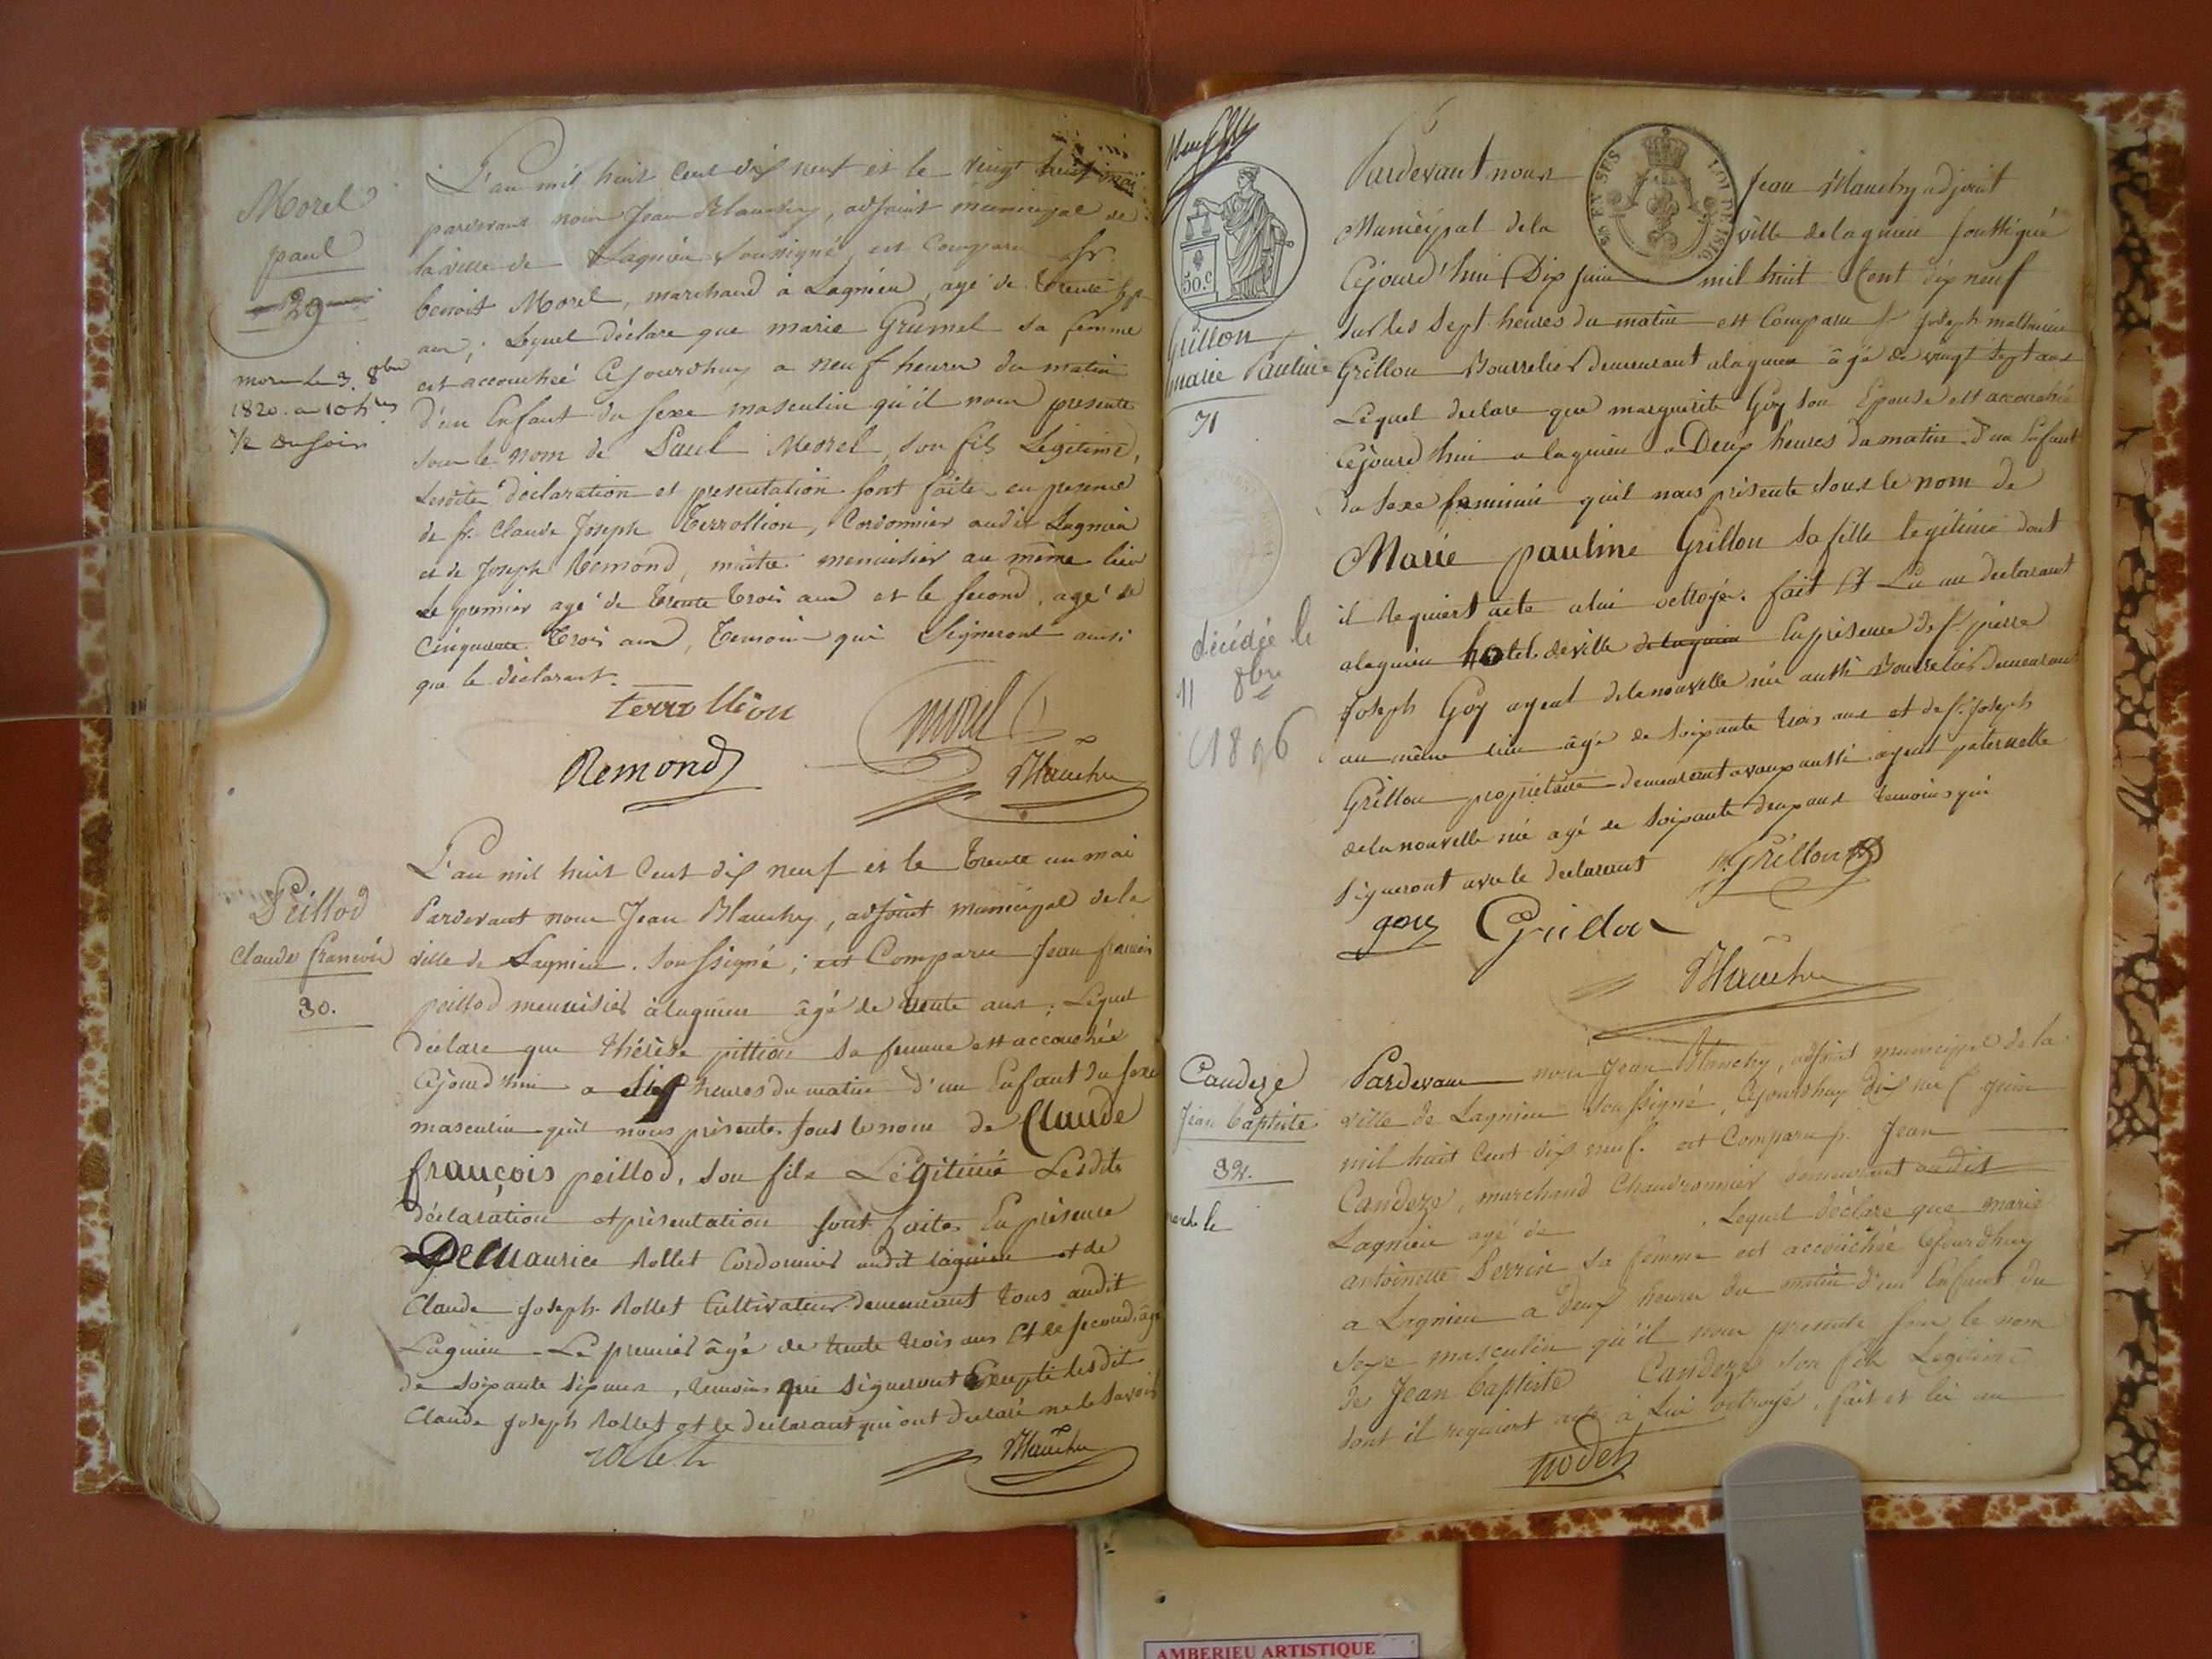 Morel
paul
29
mort le 3. 8bre
1820. a 10 hres
1/2 du soir
L'an mil huit Cent dix neuf et le vingt neuf mai
pardevant nous Jean Blanchy, adjoint municipal de
la ville de Lagnieu soussigné, est Comparu Sr.
benoit Morel, marchand à Lagnieu, agé de trente sept
ans; Lequel déclare que marie Grumel sa femme
est accouchée Cejourdhuy a neuf heures du matin
d'un Enfant du sexe masculin qu'il nous presente
sous le nom de Paul Morel, son fils Légitime,
Lesdites déclaration et presentation sont faites en presence
de sr. Claude Joseph Terrollion, Cordonnier audit Lagnieu
et de Joseph Remond, maitre menuisier au même lieu
Le premier agé de trente trois ans et le second, agé de
Cinquante trois ans, temoins qui Signeront ainsi
que le déclarant.
terrollion
morel
Remond
Blanchy
Peillod
Claude francois
30.
L'an mil huit Cent dix neuf et le trente un mai
Pardevant nous Jean Blanchy, adjoint municipal de la
ville de Lagnieu. Soussigné; est Comparu Jean francois
peillod menuisier à lagnieu âgé de trente ans; Lequel
déclare que thérèse pittion sa femme est accouchée
Cejourd'hui a dix heures du matin d'un Enfant du sexe
masculin qu'il nous présente sous le nom de Claude
françois peillod, son fils Légitime Lesdites
déclaration et présentation sont faites En présence
De Maurice Rollet Cordonnier audit lagnieu et de
Claude Joseph Rollet Cultivateur demeurant tous audit
Lagnieu Le premier âgé de trente trois ans Et le second âgé
de soixante six ans, temoins qui signeront Excepté lesdit
Claude Joseph Rollet et le declarant qui ont declaré ne le savoir
rollet
Blanchy
50.C
Grillon
marie Pauline
31
décédée le
11 8bre
1896
Pardevant nous Jean Blanchy adjoint
LOI DE 1816
Municipal de la ville de lagnieu soussigné
Cejourd'hui Dix juin mil huit Cent dix neuf
sur les sept heures du matin est Comparu Sr joseph
Grillon Bourrelier demeurant a lagnieu âgé de vingt sept ans
Lequel declare que marguerite Goy son Epouse est accouchée
Cejourd'hui a lagnieu a Deux heures du matin d'un Enfant
du sexe feminin qu'il nous présente sous le nom de
Marie pauline Grillon sa fille legitime dont
il Requiert acte a lui octroyé. fait Et Lu au declarant
a lagnieu hotel de ville de lagnieu En présence de Sr. pierre
Joseph Goy ayeul de la nouvelle née aussi Bourrelier demeurant
au même lieu âgé de soixante trois ans et de Sr. Joseph
Grillon propriétaire demeurant a vaux aussi ayeul paternelle
de la nouvelle née agé de soixante deux ans temoins qui
signeront avec le declarant
Grillon
goy Grillon
Blanchy
Candeze
Jean baptiste
32.
Pardevant nous Jean Blanchy, adjoint municipal de la
ville de Lagnieu soussigné, Cejourdhuy dix neuf juin
mil huit Cent dix neuf. est Comparu sr. Jean
Candeze, marchand Chaudronnier demeurant audit
Lagnieu agé de . Lequel déclare que marie
antoinette Perrin sa femme est accouchée Cejourdhuy
a Lagnieu a deux heures du matin d'un Enfant du
sexe masculin qu'il nous presente sous le nom
de Jean baptiste Candeze son fils Legitime
dont il requiert acte à Lui octroyé, fait et lu au
nodet
AMBERIEU ARTISTIQUE